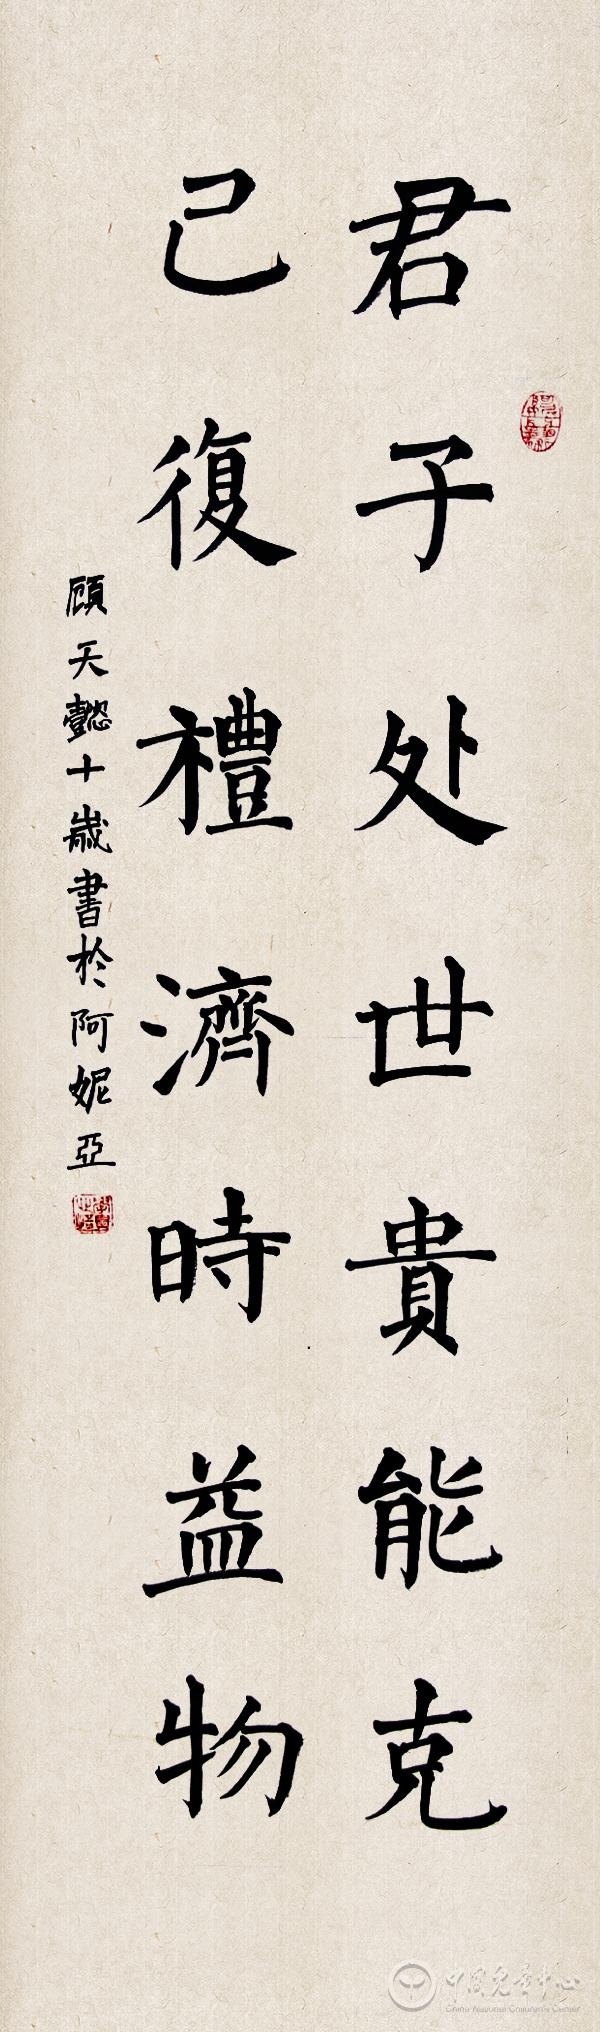 君子处世貴能克
己復禮濟時益物
顧天懿十歲書於阿妮亞
中国儿童中心
China National Children's Center